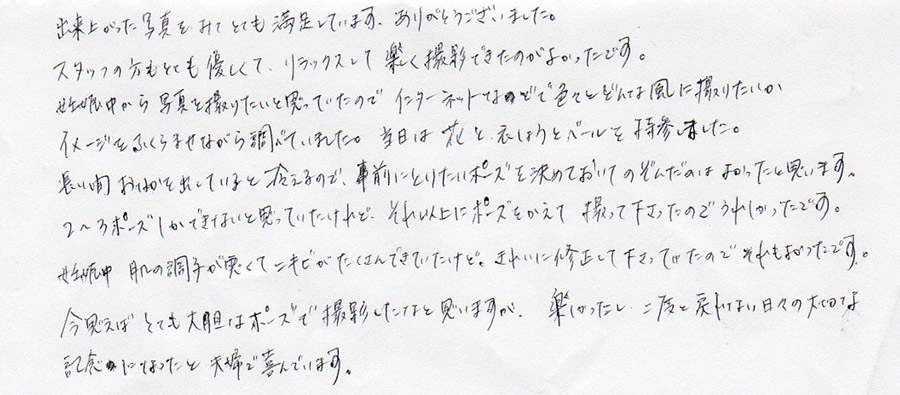 出来上がった写真をみてとても満足しています。ありがとうございました。
スタッフの方もとても優しくて、リラックスして楽しく撮影できたのがよかったです。
妊娠中から写真を撮りたいと思っていたので インターネットなどで色々とどんな風に撮りたいか
イメージをふくらませながら調べていました。当日は 花と、衣しょうとベールを持参しました。
長い間おなかを出していると冷えるので、事前にとりたいポーズを決めておいてのぞんだのはよかったと思います。
2〜3ポーズしかできないと思っていたけれど、それ以上にポーズをかえて 撮って下さったのでうれしかったです。
妊娠中 肌の調子が悪くてニキビがたくさんできていたけど。きれいに修正して下さっていたのでそれもよかったです。
今思えば とても大胆なポーズで撮影したなと思いますが、楽しかったし、二度と戻れない日々の大切な
記念になったと夫婦で喜んでいます。